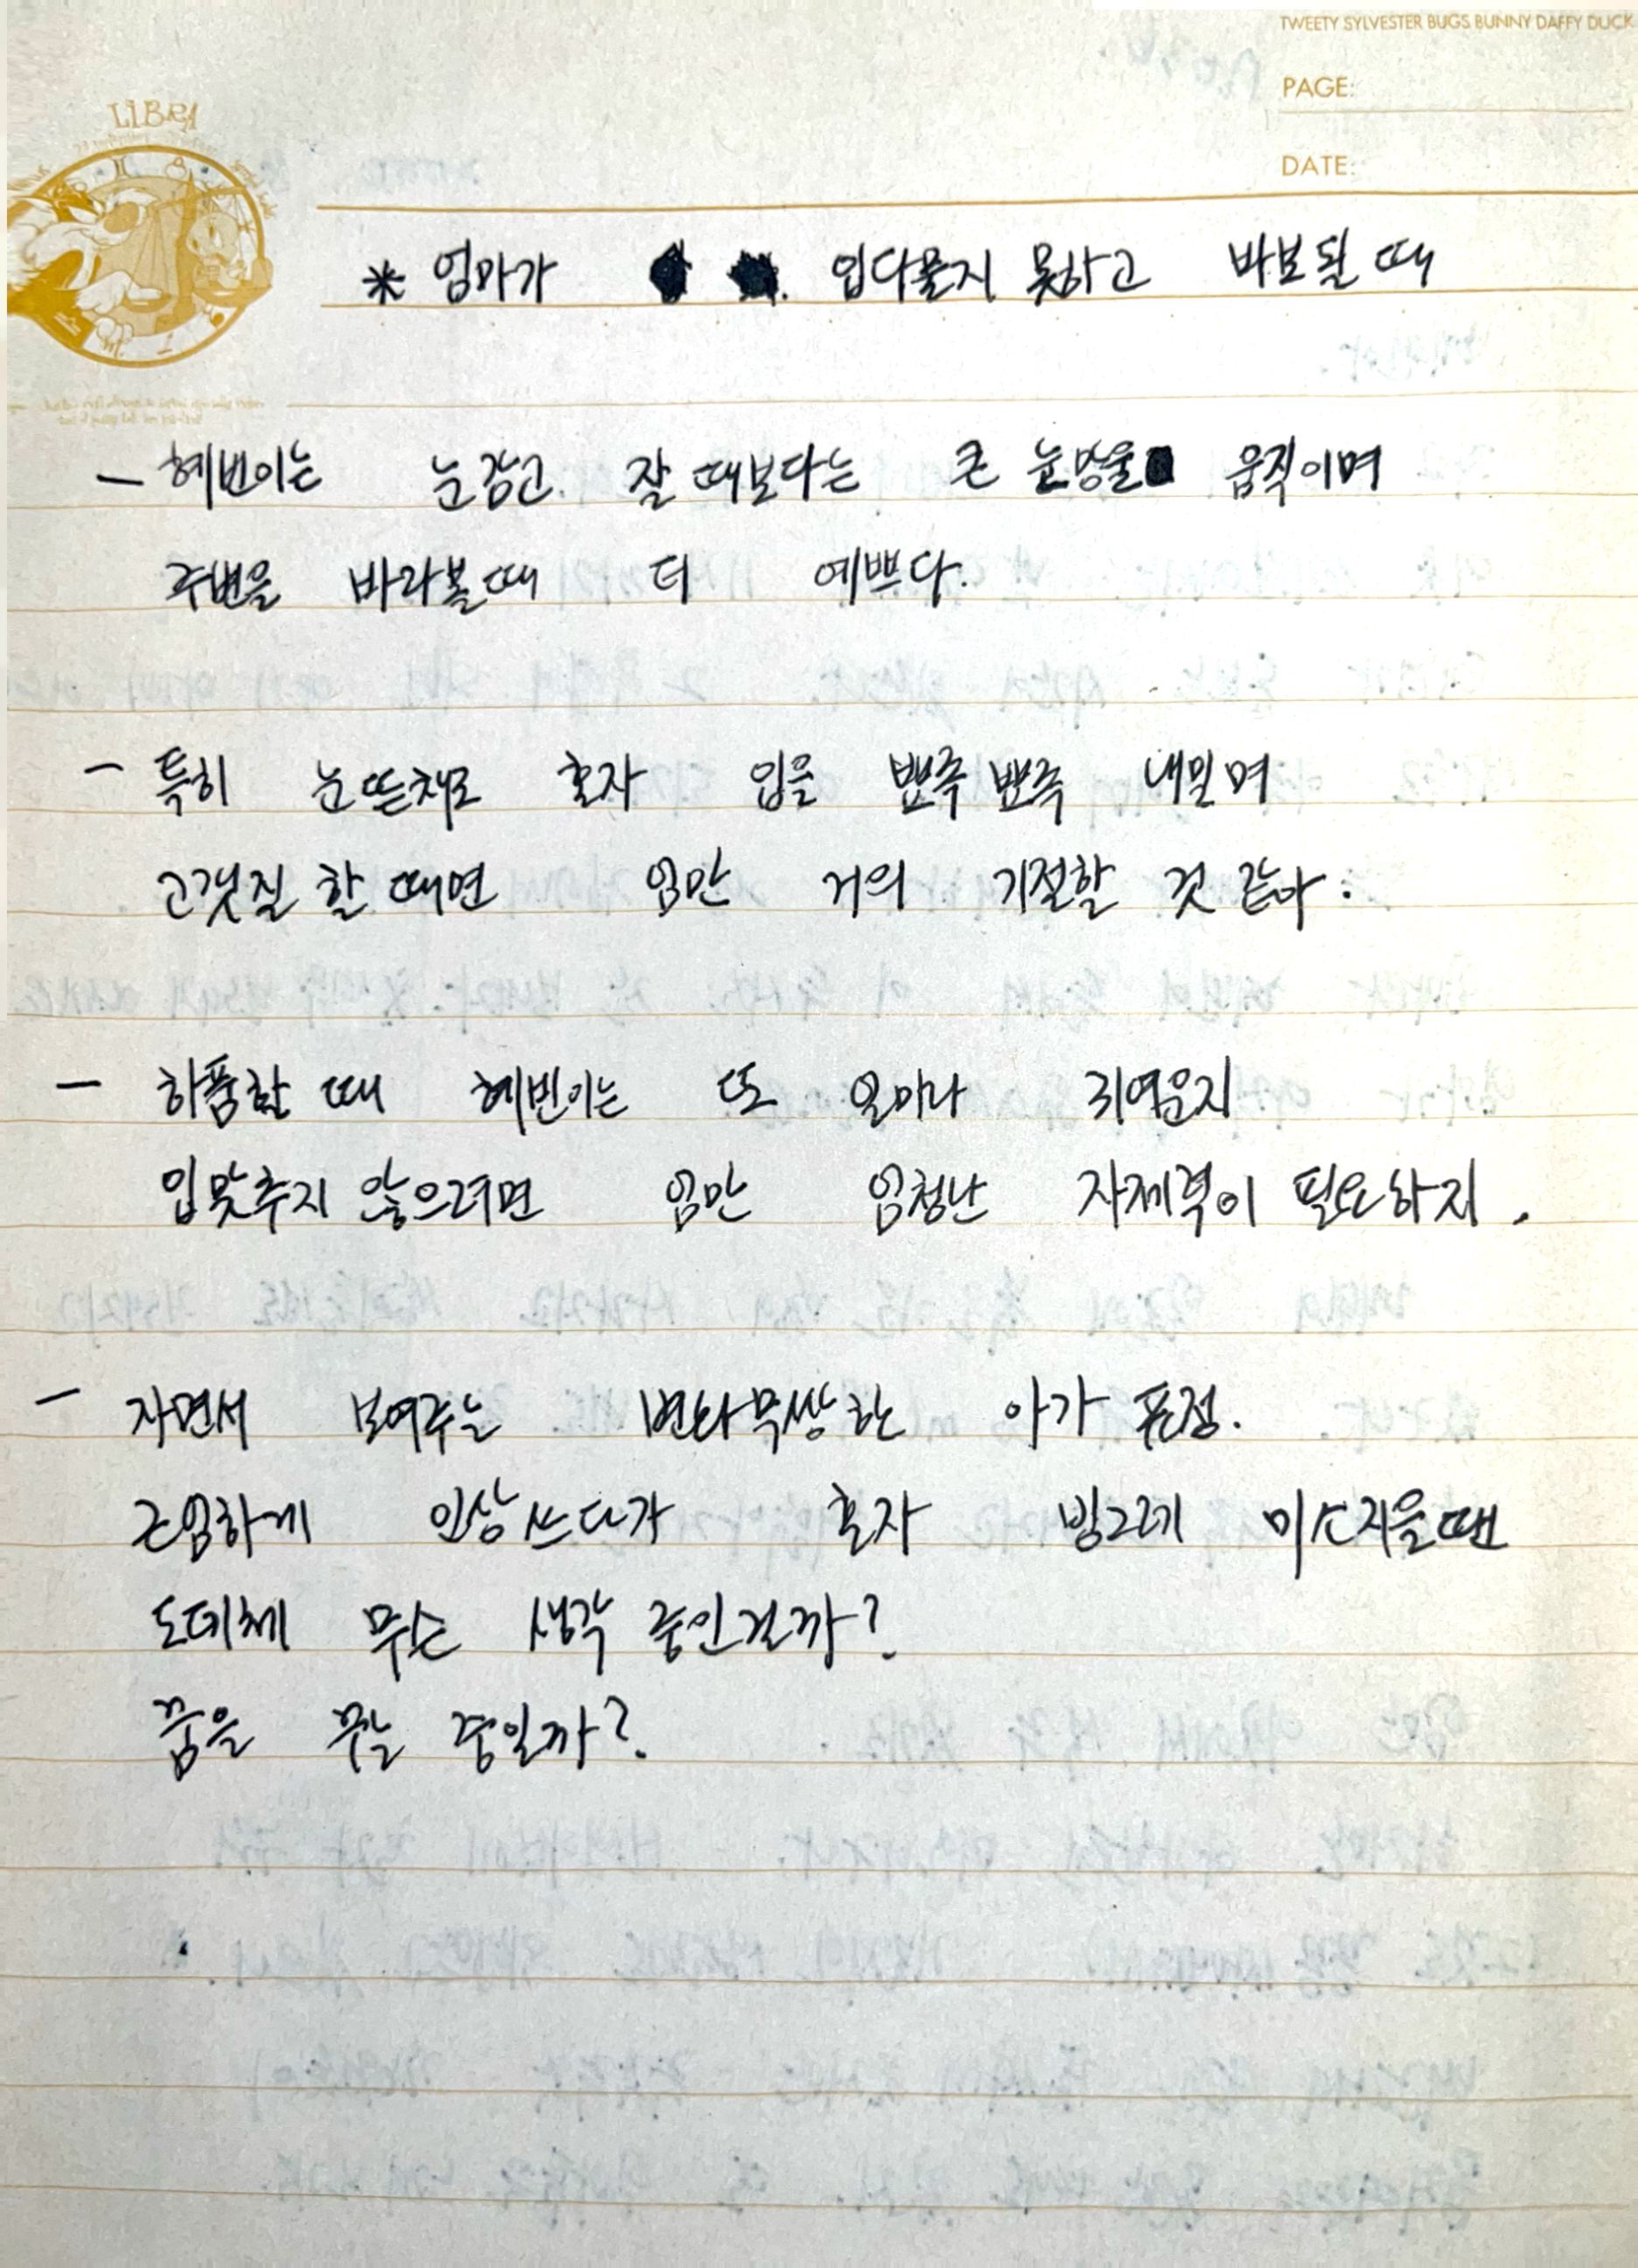 TWEETY SYLVESTER BUGS BUNNY DAFFY DUCK
PAGE:
LIBRA
DATE:
* 엄마가 입다물지 못하고 바보될 때
- 혜빈이는 눈감고 잘 때보다는 큰 눈망울 움직이며
주변을 바라볼때 더 예쁘다.
- 특히 눈뜬채로 혼자 입을 뾰족뾰족 내밀며
고갯질 할 때면 엄만 거의 기절할 것 같아.
- 하품할 때 혜빈이는 또 얼마나 귀여운지
입맞추지 않으려면 엄만 엄청난 자제력이 필요하지.
- 자면서 보여주는 변화무쌍한 아가 표정.
근엄하게 인상쓰다가 혼자 빙그레 미소지을땐
도데체 무슨 생각 중인걸까?
꿈을 꾸는 중일까?